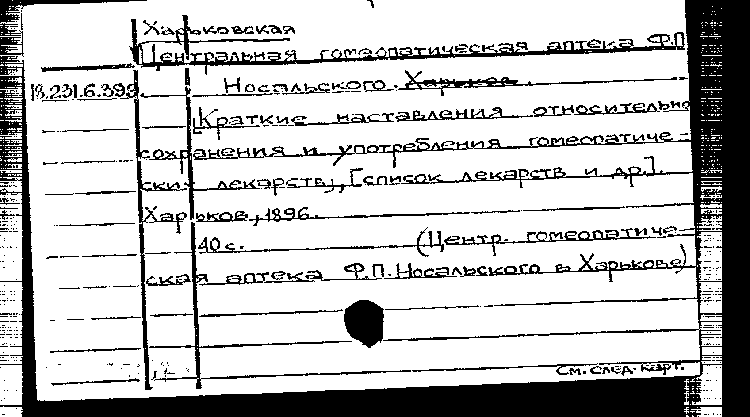 Харьковская
Центральная гомеопатическая аптека Ф.П.
18.231.6.399. Носальского. Харьков.
[Краткие наставления относительно
сохранения и употребления гомеопатиче-
ских лекарств], [список лекарств и др.].
Харьков, 1896.
40 с. (Центр. гомеопатиче-
ская аптека Ф.П. Носальского в Харькове)
См. след. карт.